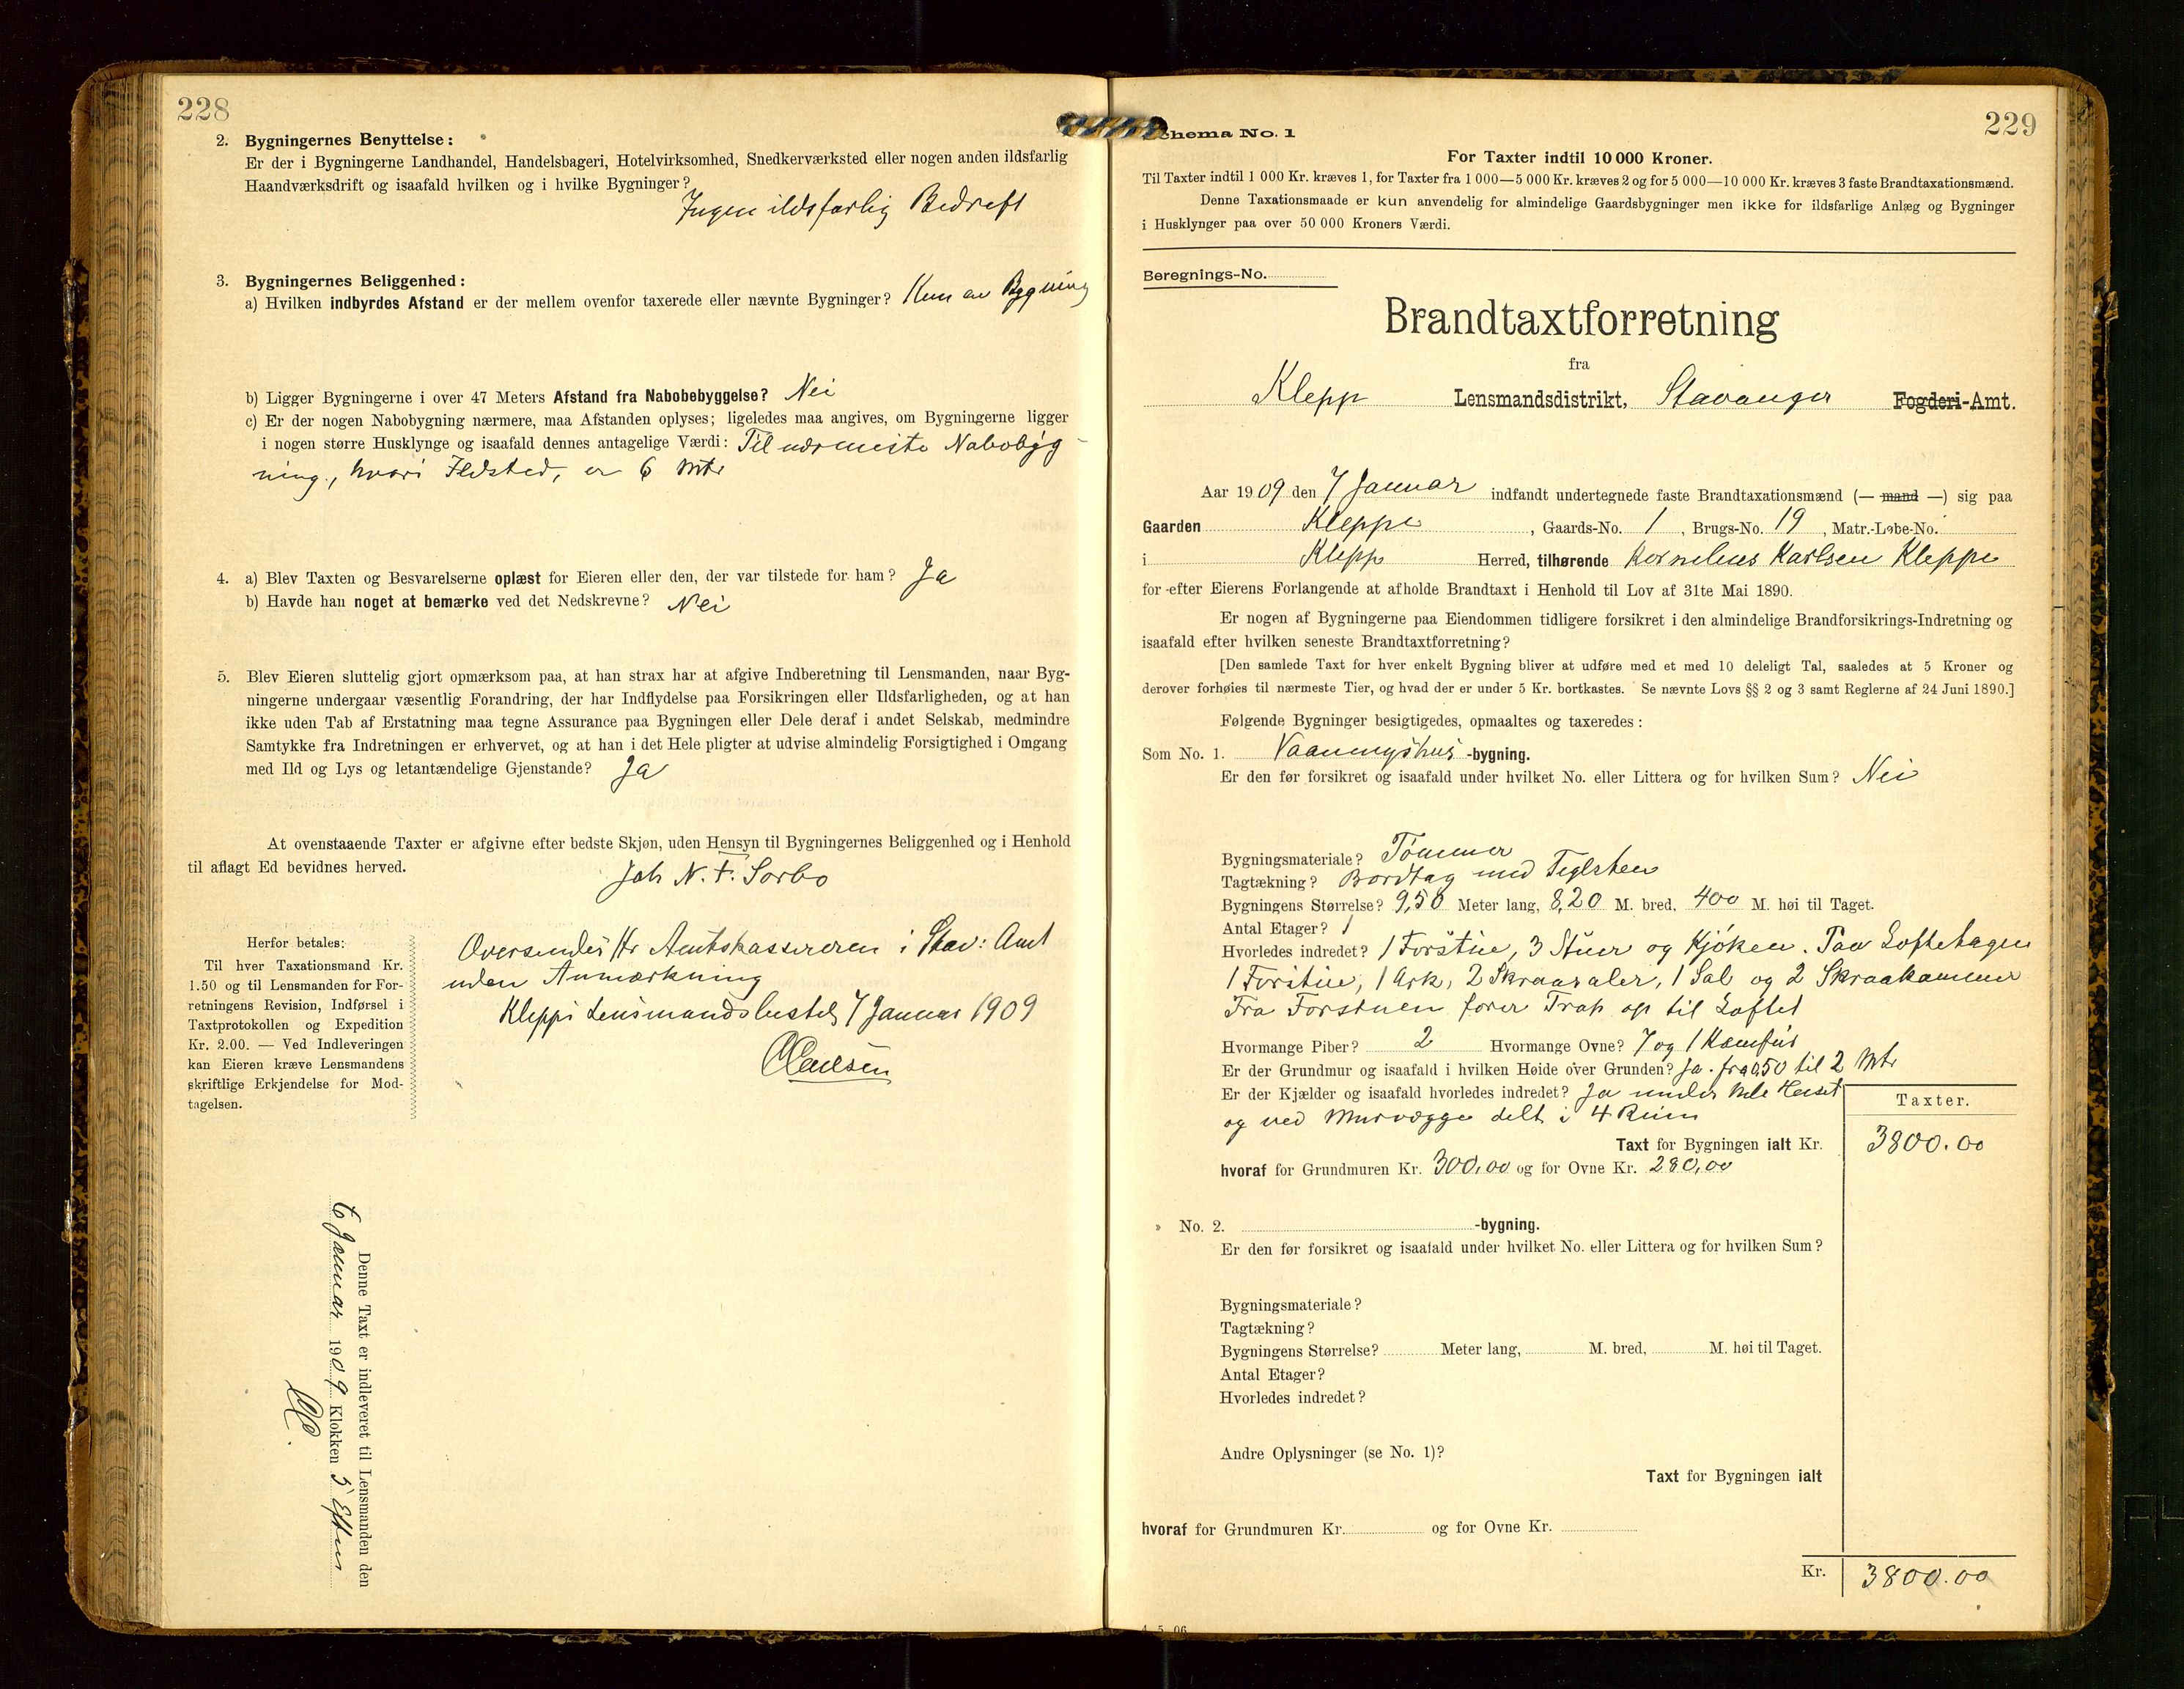 228
2. Bygningernes Benyttelse:
Er der i Bygningerne Landhandel, Handelsbageri, Hotelvirksomhed, Snedkerværksted eller nogen anden ildsfarlig
Haandværksdrift og isaafald hvilken og i hvilke Bygninger?
Ingen ildsfarlig Bedrift
3. Bygningernes Beliggenhed:
a) Hvilken indbyrdes Afstand er der mellem ovenfor taxerede eller nævnte Bygninger? Kun en Bygning
b) Ligger Bygningerne i over 47 Meters Afstand fra Nabobebyggelse? Nei
c) Er der nogen Nabobygning nærmere, maa Afstanden oplyses; ligeledes maa angives, om Bygningerne ligger
i nogen større Husklynge og isaafald dennes antagelige Værdi: Til nærmeste Nabobyg-
ning, hvori Ildsted, er 6 Mtr
4. a) Blev Taxten og Besvarelserne oplæst for Eieren eller den, der var tilstede for ham? Ja
b) Havde han noget at bemærke ved det Nedskrevne? Nei
5. Blev Eieren sluttelig gjort opmærksom paa, at han strax har at afgive Indberetning til Lensmanden, naar Byg-
ningerne undergaar væsentlig Forandring, der har Indflydelse paa Forsikringen eller Ildsfarligheden, og at han
ikke uden Tab af Erstatning maa tegne Assurance paa Bygningen eller Dele deraf i andet Selskab, medmindre
Samtykke fra Indretningen er erhvervet, og at han i det Hele pligter at udvise almindelig Forsigtighed i Omgang
med Ild og Lys og letantændelige Gjenstande? Ja
At ovenstaaende Taxter er afgivne efter bedste Skjøn, uden Hensyn til Bygningernes Beliggenhed og i Henhold
til aflagt Ed bevidnes herved.
Joh N. T. Sørbø
Herfor betales:
Til hver Taxationsmand Kr.
1.50 og til Lensmanden for For-
retningens Revision, Indførsel i
Taxtprotokollen og Expedition
Kr. 2.00. — Ved Indleveringen
kan Eieren kræve Lensmandens
skriftlige Erkjendelse for Mod-
tagelsen.
Oversendes Hr Amtskassereren i Stav: Amt
uden Anmærkning
Klepps Lensmandsbestel 7 Januar 1909
Denne Taxt er indleveret til Lensmanden den
6 Januar 1909 Klokken 5 Efterm
229
Schema No. 1
For Taxter indtil 10 000 Kroner.
Til Taxter indtil 1 000 Kr. kræves 1, for Taxter fra 1 000—5 000 Kr. kræves 2 og for 5 000—10 000 Kr. kræves 3 faste Brandtaxationsmænd.
Denne Taxationsmaade er kun anvendelig for almindelige Gaardsbygninger men ikke for ildsfarlige Anlæg og Bygninger
i Husklynger paa over 50 000 Kroners Værdi.
Beregnings-No.
Brandtaxtforretning
fra
Klepp Lensmandsdistrikt, Stavanger Fogderi-Amt.
Aar 1909 den 7 Januar indfandt undertegnede faste Brandtaxationsmænd (— mand —) sig paa
Gaarden Kleppe, Gaards-No. 1, Brugs-No. 19, Matr.-Løbe-No.
i Klepp Herred, tilhørende Kornelius Karlsen Kleppe
for efter Eierens Forlangende at afholde Brandtaxt i Henhold til Lov af 31te Mai 1890.
Er nogen af Bygningerne paa Eiendommen tidligere forsikret i den almindelige Brandforsikrings-Indretning og
isaafald efter hvilken seneste Brandtaxtforretning?
[Den samlede Taxt for hver enkelt Bygning bliver at udføre med et med 10 deleligt Tal, saaledes at 5 Kroner og
derover forhøies til nærmeste Tier, og hvad der er under 5 Kr. bortkastes. Se nævnte Lovs §§ 2 og 3 samt Reglerne af 24 Juni 1890.]
Følgende Bygninger besigtigedes, opmaaltes og taxeredes:
Som No. 1. Vaaningshus -bygning.
Er den før forsikret og isaafald under hvilket No. eller Littera og for hvilken Sum? Nei
Bygningsmateriale? Tømmer
Tagtækning? Bordtag med Teglsten
Bygningens Størrelse? 9,50 Meter lang, 8,20 M. bred, 400 M. høi til Taget.
Antal Etager? 1
Hvorledes indredet? 1 Forstue, 3 Stuer og Kjøken. Paa Loftetagen
1 Forstue, 1 Ark, 2 Skraasaler, 1 Sal og 2 Skraakammer
Fra Forstuen fører Trap op til Loftet
Hvormange Piber? 2 Hvormange Ovne? 7 og 1 Komfur
Er der Grundmur og isaafald i hvilken Høide over Grunden? Ja. fra 0,50 til 2 Mtr
Er der Kjælder og isaafald hvorledes indredet? Ja under hele Huset
og ved Murvægge delt i 4 Rum
Taxter.
Taxt for Bygningen ialt Kr. 3800.00
hvoraf for Grundmuren Kr. 300,00 og for Ovne Kr. 280,00
» No. 2. -bygning.
Er den før forsikret og isaafald under hvilket No. eller Littera og for hvilken Sum?
Bygningsmateriale?
Tagtækning?
Bygningens Størrelse? Meter lang, M. bred, M. høi til Taget.
Antal Etager?
Hvorledes indredet?
Andre Oplysninger (se No. 1)?
Taxt for Bygningen ialt
hvoraf for Grundmuren Kr. og for Ovne Kr.
Kr. 3800.00